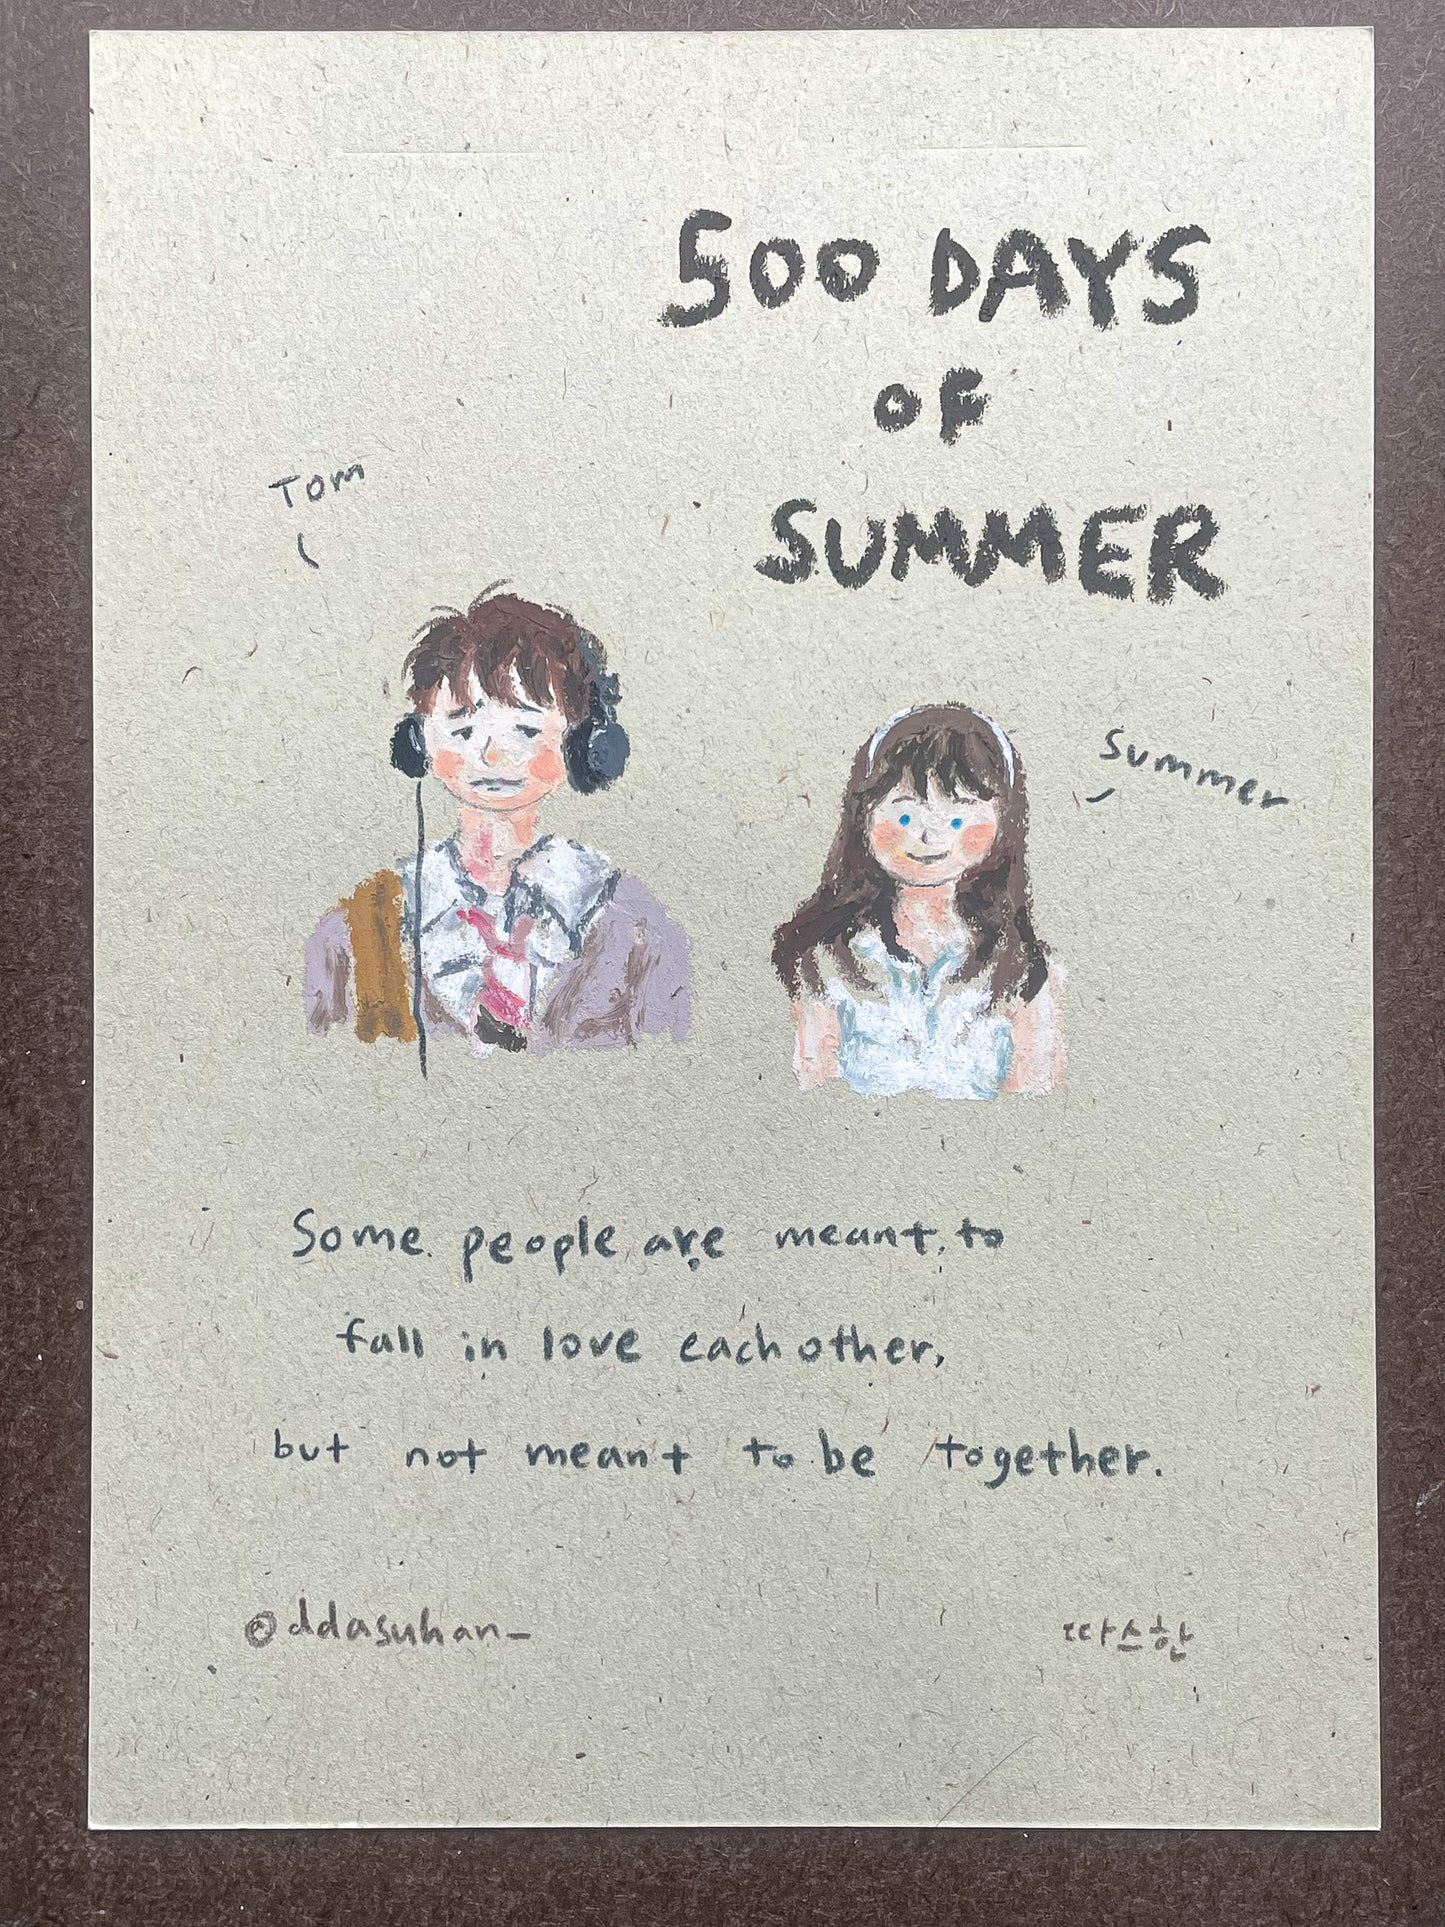 500 DAYS
OF
SUMMER
Tom
Summer
Some people are meant to
fall in love each other,
but not meant to be together.
@ddasuhan_
따스한